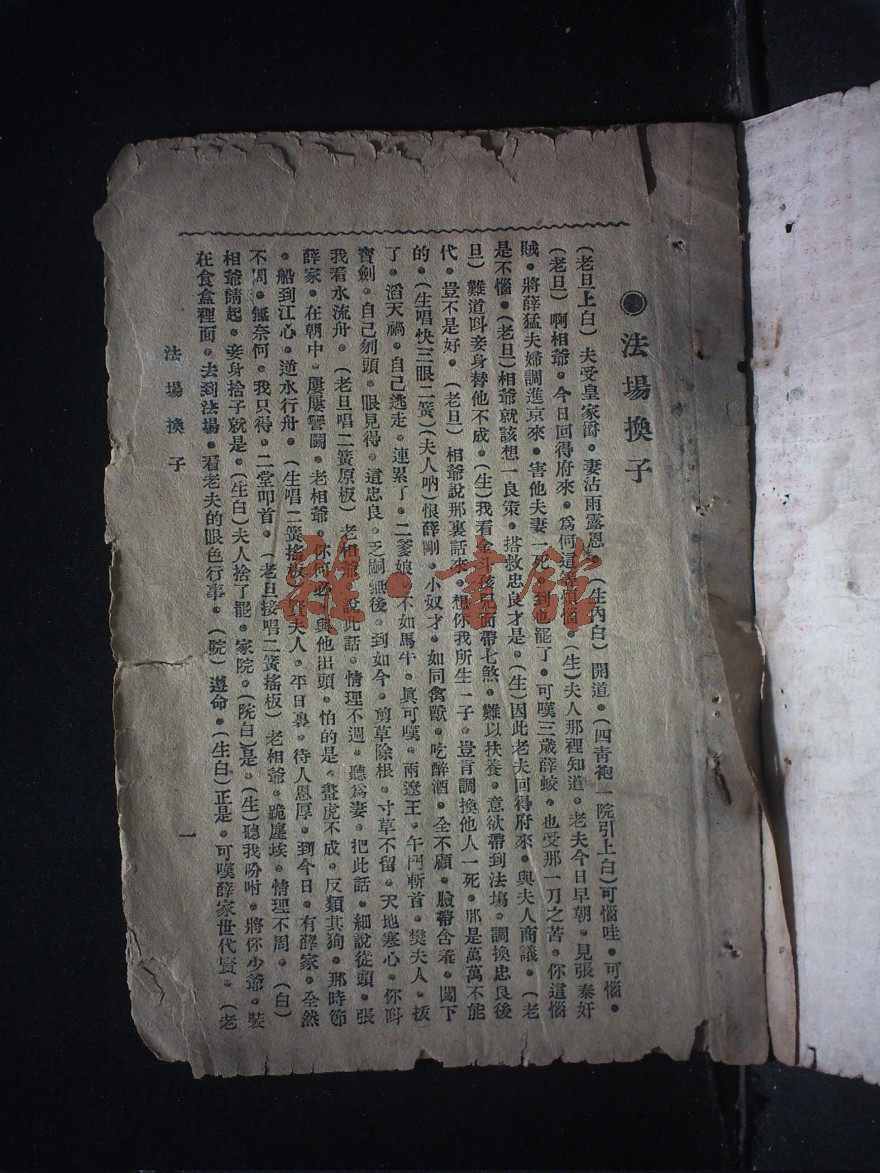 法場換子
(老旦上白) 夫受皇家爵。妻沾雨露恩。(生內白) 開道。(四青袍一院引上白) 可惱哇。可惱。
(老旦) 啊相爺。今日回得府來。為何這等煩惱。(生) 夫人那裡知道。老夫今日早朝。見張泰奸
賊。將薛猛夫婦調進京來。害他夫妻一死。到也罷了。可嘆三歲薛蛟。也受那一刀之苦。你這惱
是不惱。(老旦) 相爺就該想一良策。搭救忠良才是。(生) 因此老夫回得府來。與夫人商議。(老
旦) 難道叫妾身替他不成。(生) 我看金斗孩兒面帶七煞。難以扶養。意欲帶到法塲。調換忠良後
代。豈不是好。(老旦) 相爺說那裏話來。想你我所生一子。豈言調換他人一死。那是萬萬不能
的。(生唱快三眼二簧) (夫人吶) 恨薛剛。小奴才。如同禽獸。吃醉酒。全不顧。臉帶含羞。闖下
了。滔天禍。自己逃走。連累了。二爹娘。不如馬牛。眞可嘆。兩遼王。午門斬首。樊夫人。拔
寳劍。自己刎頭。眼見得。這忠良。乏嗣無後。到如今。剪草除根。寸草不留。天地寒心。你叫
我看水流舟。(老旦唱二簧原板) 老相爺。說此話。情理不週。聽為妻。把此話。細說從頭。張
薛家。在朝中。屢屢讐鬭。老相爺。你何必。與他出頭。怕的是。畫虎不成。反類其狗。那時節
。船到江心。逆水行舟。(生唱二簧搖板) 賢夫人。平日裏。待人恩厚。到今日。有薛家。全然
不周。無奈何。我只得。二堂叩首。(老旦接唱二簧搖板) 老相爺。跪塵埃。情理不周。(白)
相爺請起。妾身捨子就是。(生白) 夫人捨了罷。家院。(院白) 是。(生) 聽我吩咐。將你少爺。裝
在食盒裡面。去到法塲。看老夫的眼色行事。(院) 遵命。(生白) 正是。可嘆薛家世代賢。(老
法場換子
一
雜·書館